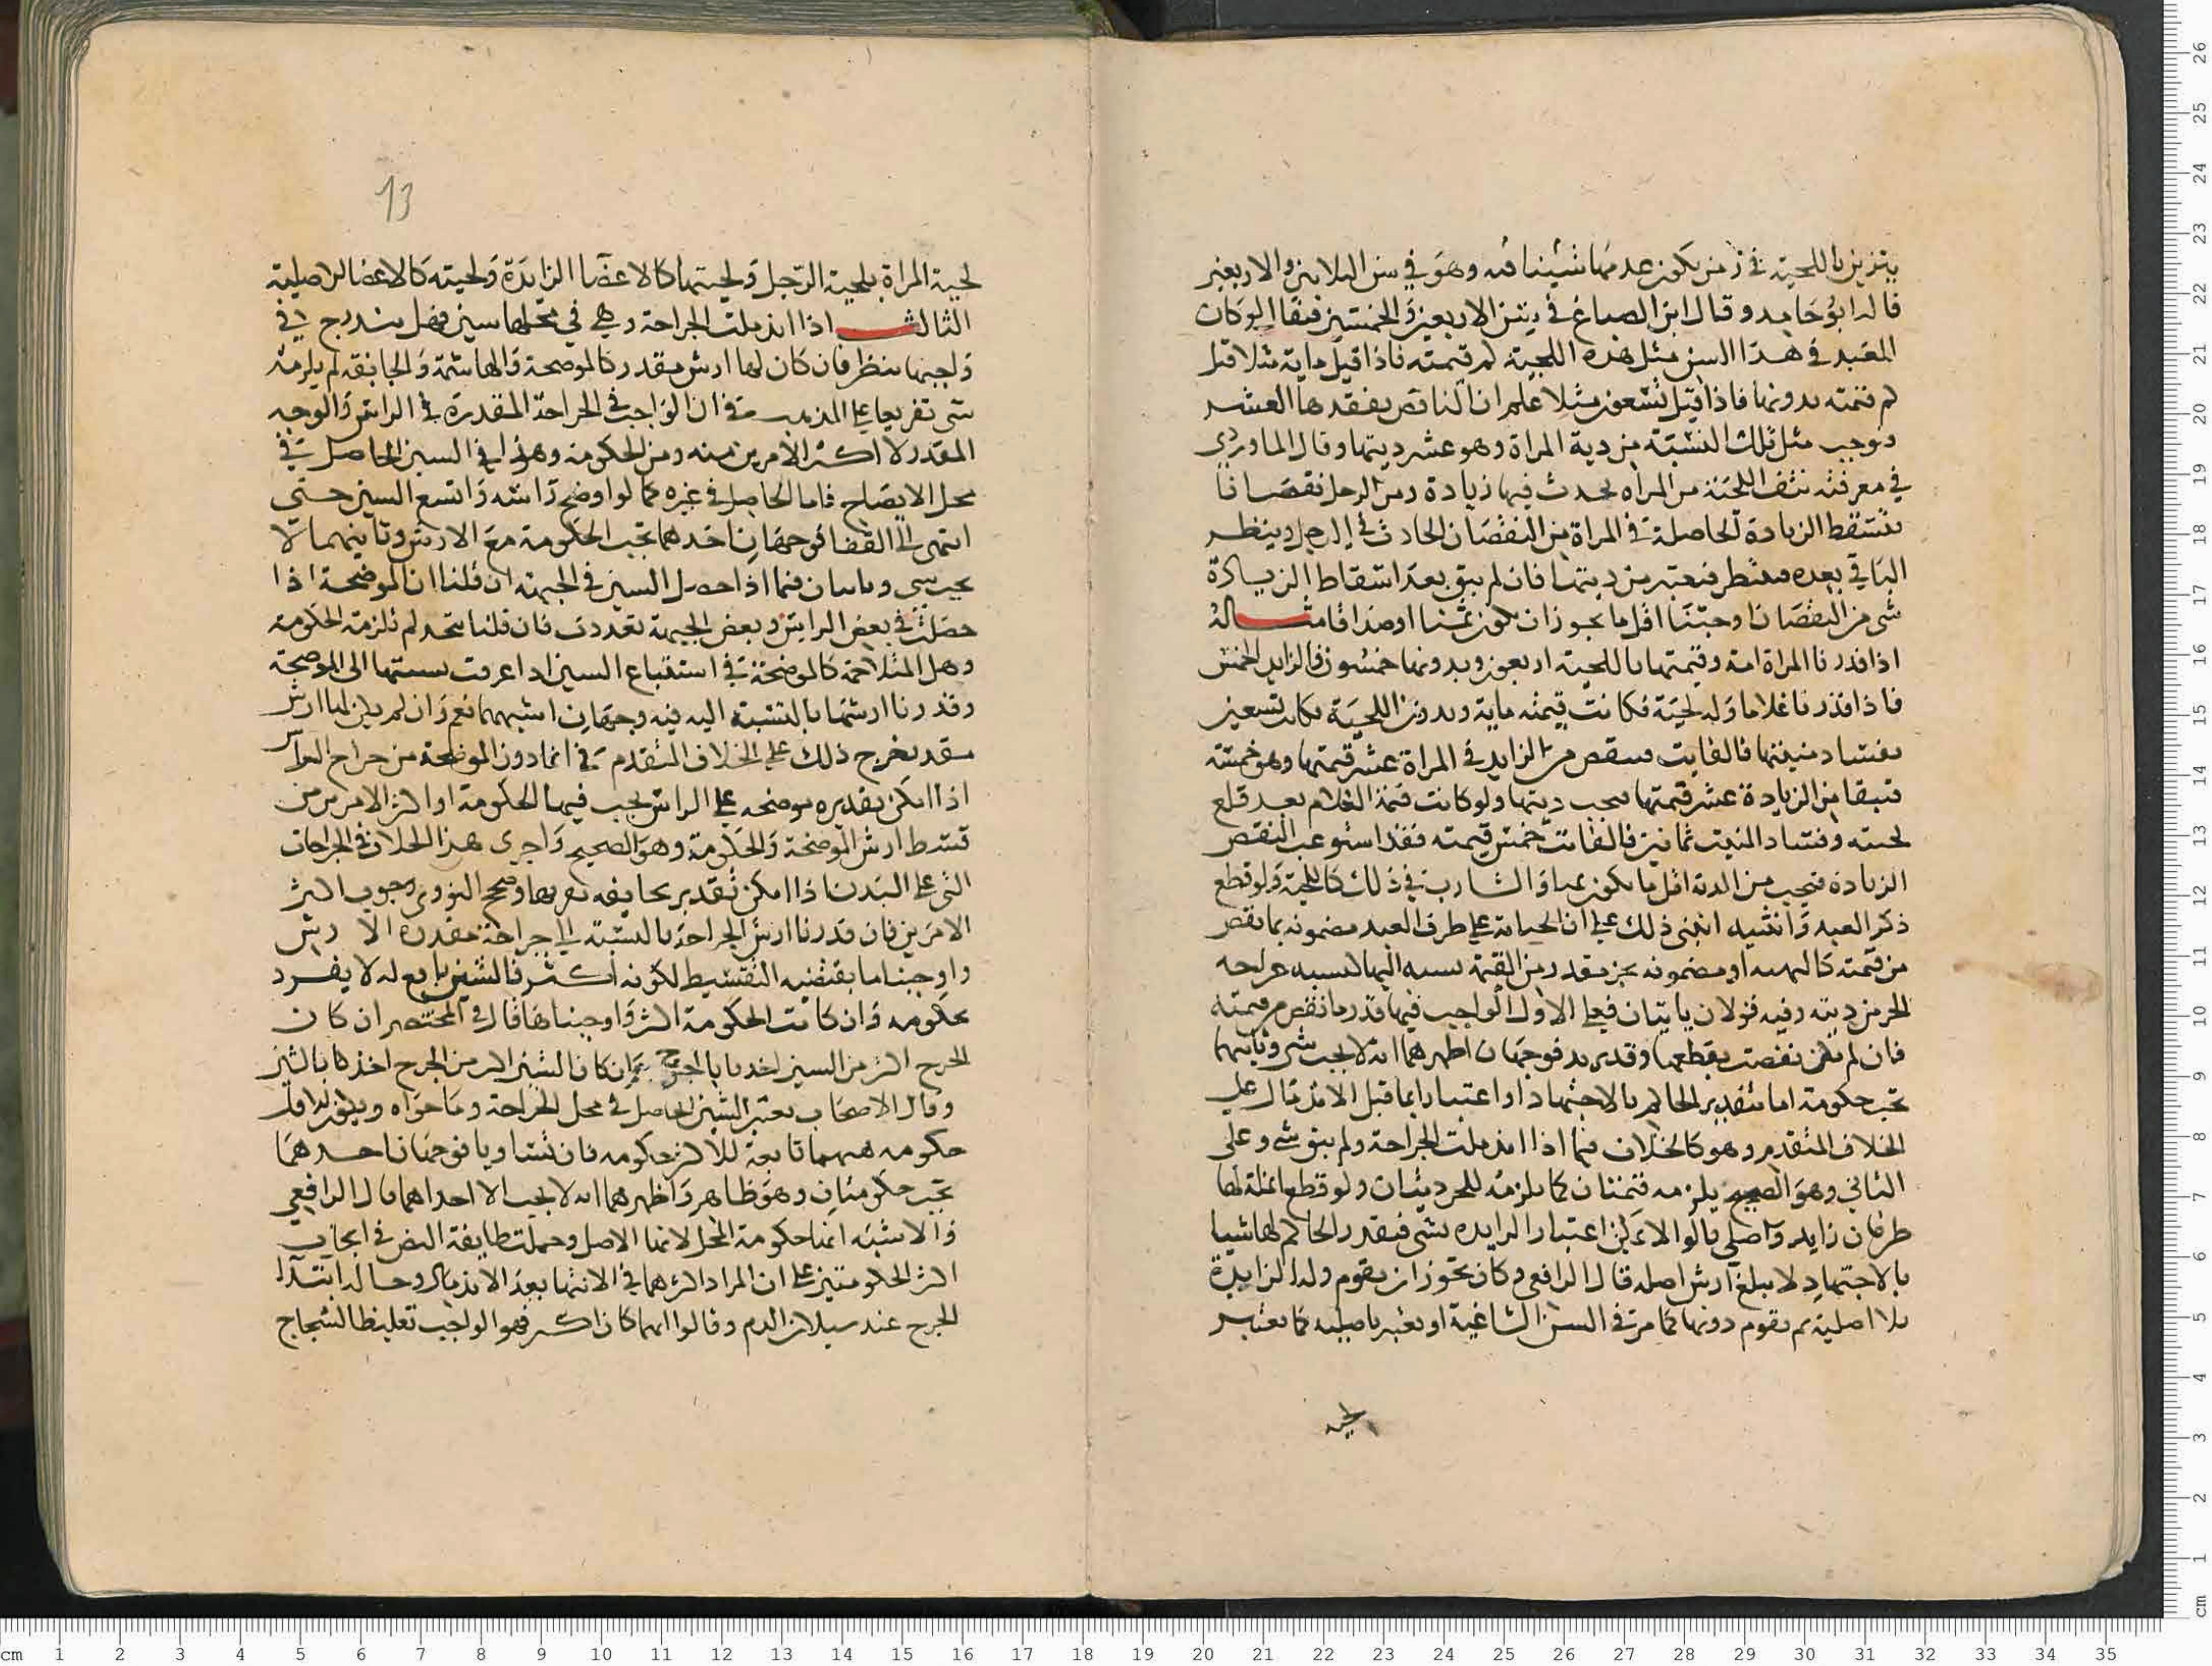 يتزين باللحية في زمن يكون عدمها شينا فيه وهو في سن الثلاثين والاربعين
قاله ابو حامد وقال ابن الصباغ في سن الاربعين والخمسين فيقال لو كان
العبد في هذا السن مثل هذه اللحية كم قيمته فاذا قيل ماية مثلا قيل
كم قيمته بدونها فاذا قيل تسعون مثلا علم ان الناقص بفقدها العشر
فوجب مثل تلك النسبة من دية المراة وهو عشر ديتها وقال الماوردي
في معرفته نتف اللحية من المراه يحدث فيها زيادة ومن الرجل نقصانا
فتسقط الزيادة الحاصلة في المراة من النقصان الحادث في الرجل وينظر
الباقي بعده فيعتبر من ديتها فان لم يبق بعد اسقاط الزيادة
شي من النقصان اوجبنا اقل ما يجوز ان يكون ثمنا او صداقا مثاله
اذا قدرنا المراة امة وقيمتها باللحية اربعون وبدونها خمسون فالزايد الخمس
فاذا قدرنا غلاما وله لحية فكانت قيمته ماية وبدون اللحية كان تسعين
بفساد منبتها فالفايت فينقص من الزايد في المراة عشر قيمتها وهو خمسة
فيبقا من الزيادة عشر قيمتها فيجب ديتها ولو كانت قيمة الغلام بعد قلع
لحيته وفساد المنبت ثمانين فالفائت خمس قيمته فقد استوعب النقص
الزيادة فيجب من الدية اقل ما يكون والشارب في ذلك كاللحية ولو قطع
ذكر العبد وانثييه انبنى ذلك على ان الجناية على طرف العبد مضمونه بما نقص
من قيمته كالبهيمة او مضمونه بجز مقدر من القيمة نسبه اليها كنسبه جراحه
الحر من ديته وفيه قولان ياتيان فعلى الاول الواجب فيها قدر ما نقص من قيمته
فان لم تكن نقصت بقطعها وقدير فوجهان اظهرهما انه لا يجب شي وثانيهما
تجب حكومة اما بتقدير الحاكم بالاجتهاد او اعتبارا بما قبل الاندمال على
الخلاف المتقدم وهو كالخلاف فيما اذا اندملت الجراحة ولم يبق شي وعلى
الثاني وهو الصحيح يلزمه قيمتان كما يلزمه للحر ديتان ولو قطع انملة لها
طرفان زايد واصلي قالوا لا يمكن اعتبار الزايده بشي فيقدر الحاكم لها شيا
بالاجتهاد لا يبلغ ارش اصله قال الرافعي وكان يجوز ان يقوم وله الزايدة
بلا اصلية ثم يقوم دونها كما مر في السن الشاغية او يعتبر باصليه كما يعتبر
لحيه
13
لحية المراة بلحية الرجل ولحيتها كالاعضا الزايدة ولحيته كالاعضا الاصلية
الثالث اذا اندملت الجراحة وبقي في محلها شين فهل يندرج في
واجبها ينظر فان كان لها ارش مقدر كالموضحة والهاشمة والجايفة لم يلزمه
شي تفريعا على المذهب في ان الواجب في الجراحة المقدرة في الراس والوجه
المقدر لا اكثر الامرين منه ومن الحكومة وهذا في الشين الحاصل في
محل الايضاح فاما الحاصل في غيره كما لو اوضح راسه واتسع الشين حتى
انتهى الى القفا فوجهان احدهما تجب الحكومة مع الارش وثانيهما لا
يجب شي وياتيان فيما اذا حصل الشين في الجبهة ان قلنا ان الموضحة اذا
حصلت في بعض الراس وبعض الجبهة تعددت فان قلنا تتحد لم تلزمه الحكومة
وهل المتلاحمة كالموضحة في استتباع الشين اذا عرفت نسبتها الى الموضحة
وقدرنا ارشها بالنسبة اليه فيه وجهان اشبههما نعم وان لم يكن لها ارش
مقدر يخرج ذلك على الخلاف المتقدم في انما دون الموضحة من جراح الراس
اذا امكن تقديره بموضحه على الراس يجب فيها الحكومة او اكثر الامرين من
قسط ارش الموضحة والحكومة وهو الصحيح واجرى هذا الخلاف في الجراحات
التي على البدن اذا امكن تقديرها بجايفه بقربها وصحح النووي وجوب اكثر
الامرين فان قدرنا ارش الجراحة بالنسبة الى جراحة مقدرة الارش
واوجبنا ما يقتضيه التقسيط لكونه اكثر فالشين تابع له لا يفرد
بحكومه وان كانت الحكومة اكثر واوجبناها قال في المختصر ان كان
الجرح اكثر من الشين اخذنا بالجرح وان كان الشين اكثر من الجرح اخذنا بالشين
وقال الاصحاب يعتبر الشين الحاصل في محل الجراحة وما حواه ويكون اقل
حكومه منهما تابعة للاكثر حكومه فان تساويا فوجهان احدهما
تجب حكومتان وهو ظاهر واظهرهما انه لا يجب الا احداهما قال الرافعي
والاشبه انها حكومة المحل لانها الاصل وحملت طايفة النص في ايجاب
اكثر الحكومتين على ان المراد اكثرهما في الانتها بعد الاندمال وحاله ابتدا
الجرح عند سيلان الدم وقالوا ايهما كان اكثر فهو الواجب تغليظا لشجاج